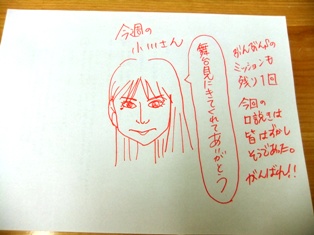 今週の
小川さん
舞台見にきてくれてありがとう
おんおん♂の
ミッションも
残り1回
今回の
口説きは
皆はずかし
そうであった。
がんばれ!!